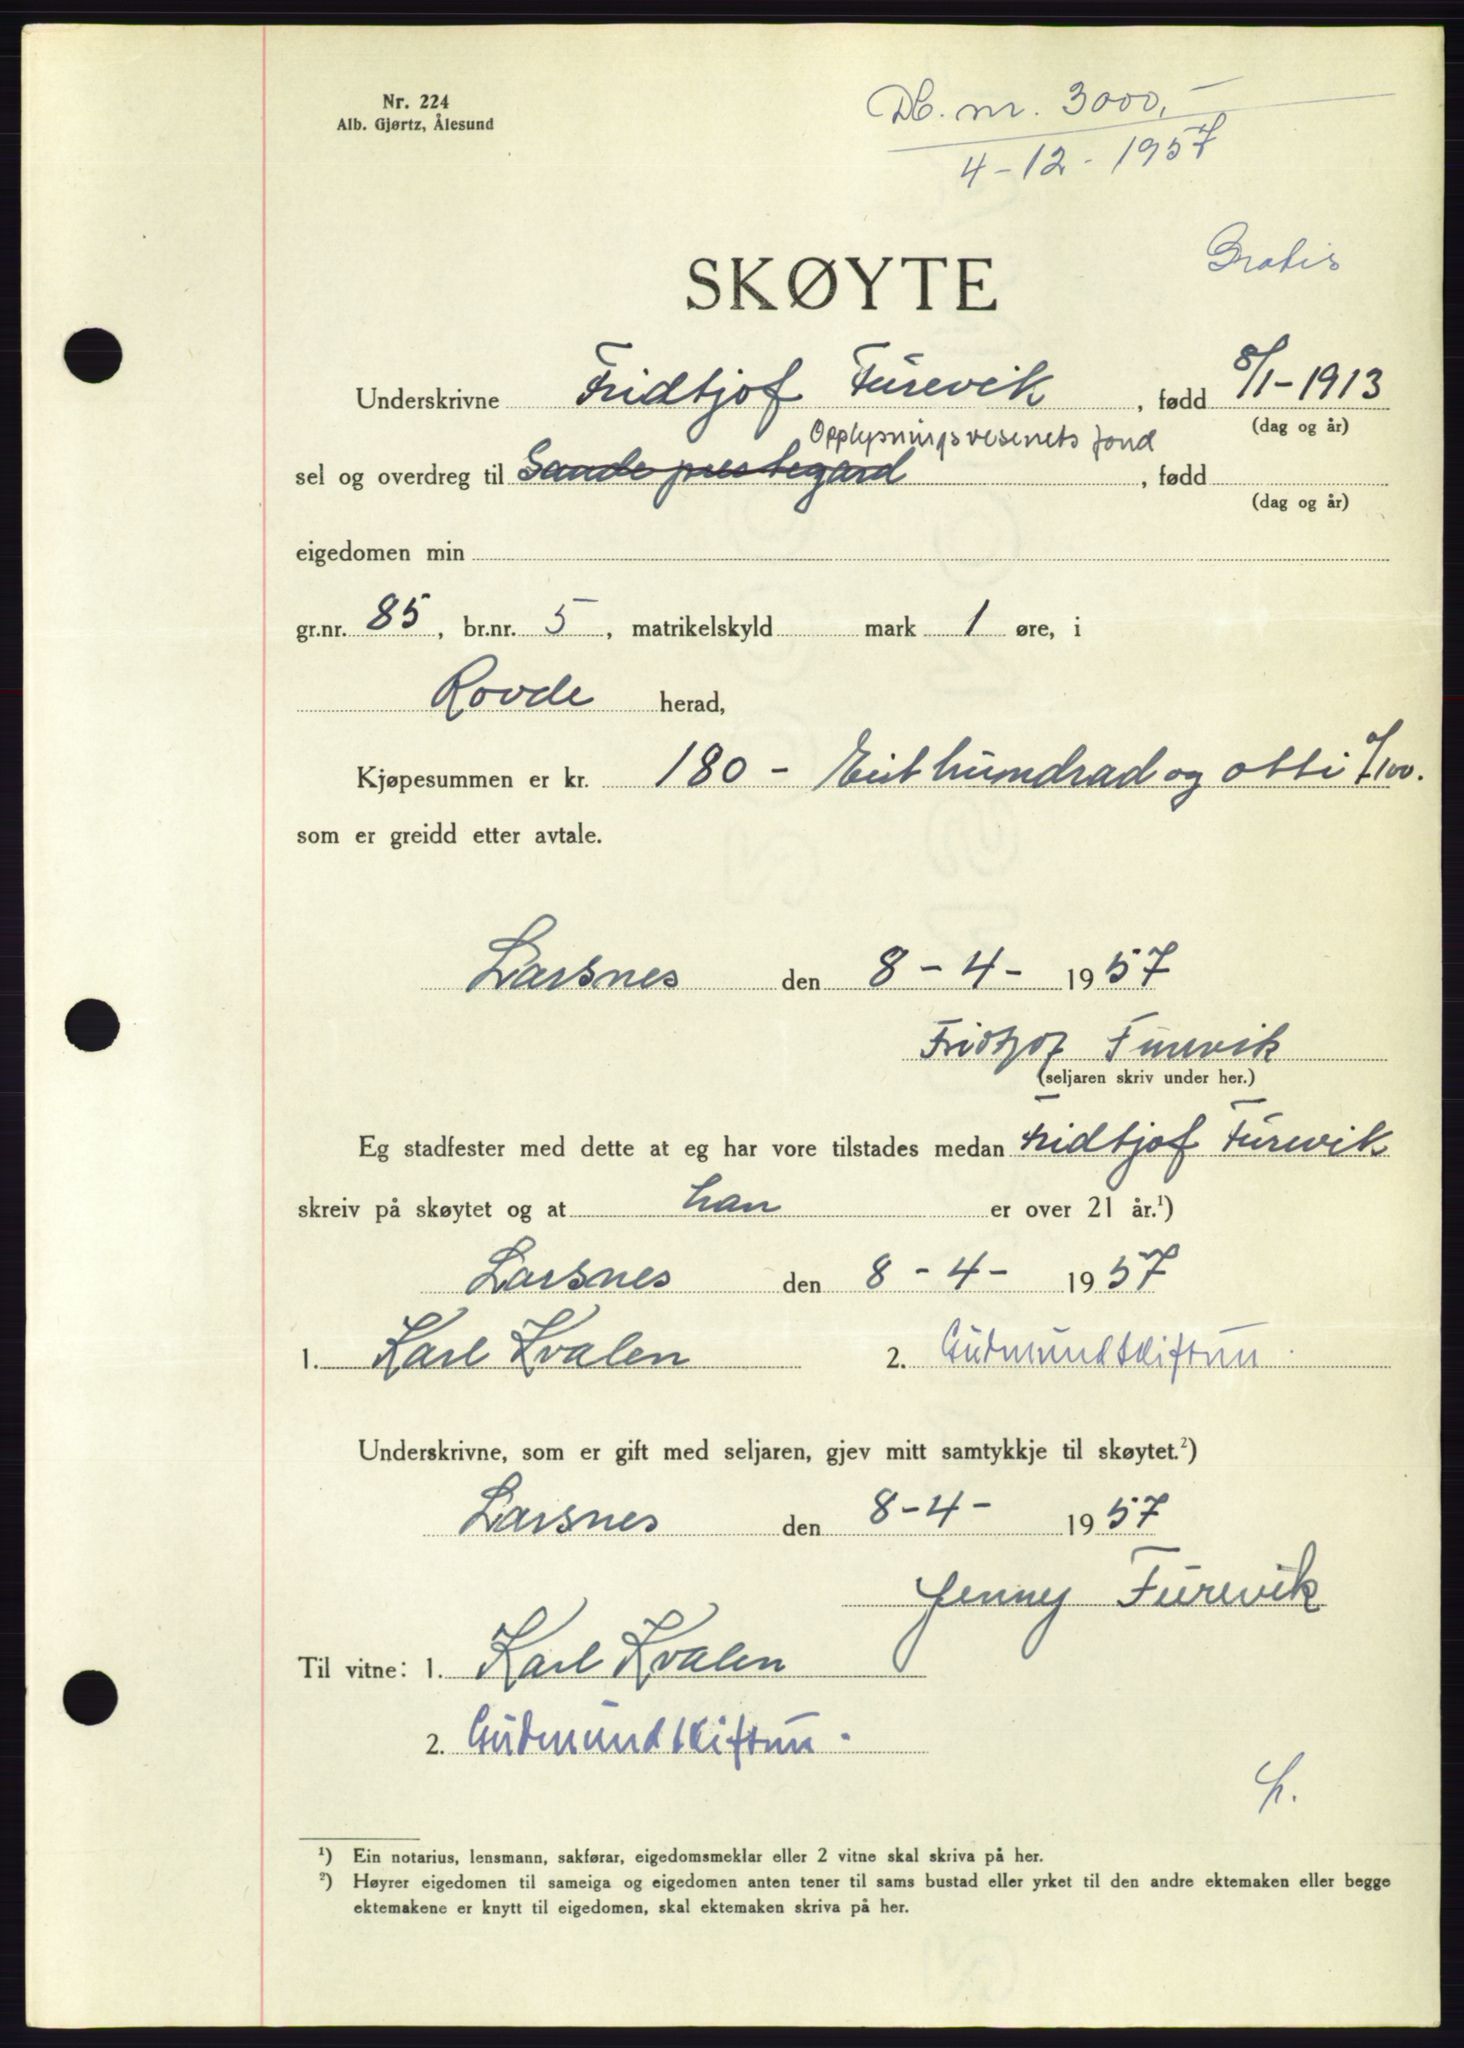 Nr. 224
Alb. Gjørtz, Ålesund
Db. nr. 3000,-
4-12-1957
Gratis
SKØYTE
Underskrivne Fridtjof Furevik, fødd 8/1-1913
(dag og år)
Opplysningsvesenets fond
sel og overdreg til Sande prestegard, fødd
(dag og år)
eigedomen min
gr.nr. 85, br.nr. 5, matrikelskyld mark 1 øre, i
Rovde herad,
Kjøpesummen er kr. 180 - Eit hundrad og otti 0/100.
som er greidd etter avtale.
Larsnes den 8-4- 1957
Fridtjof Furevik
(seljaren skriv under her.)
Eg stadfester med dette at eg har vore tilstades medan Fridtjof Furevik
skreiv på skøytet og at han er over 21 år.¹)
Larsnes den 8-4- 1957
1. Karl Kvalen 2. Gudmund Skiftun.
Underskrivne, som er gift med seljaren, gjev mitt samtykkje til skøytet.²)
Larsnes den 8-4- 1957
Jenny Furevik
Til vitne: 1. Karl Kvalen
2. Gudmund Skiftun.
¹) Ein notarius, lensmann, sakførar, eigedomsmeklar eller 2 vitne skal skriva på her.
²) Høyrer eigedomen til sameiga og eigedomen anten tener til sams bustad eller yrket til den andre ektemaken eller begge
ektemakene er knytt til eigedomen, skal ektemaken skriva på her.